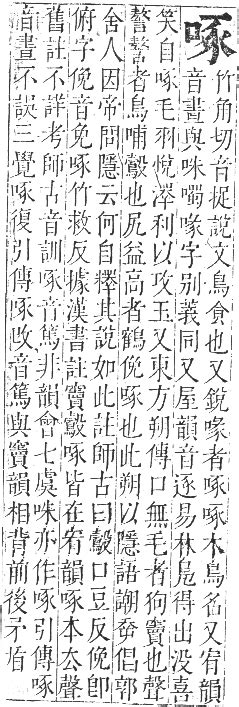 啄
竹角切音捉說文鳥食也又銳喙者啄啄木鳥名又宥韻
音晝與咮噣喙字别義同又屋韻音逐易林鳧得出没喜
笑自啄毛羽悅澤利以攻玉又東方朔傳口無毛者狗竇也聲
謷謷者鳥哺鷇也尻益高者鶴俛啄也此朔以隱語謿幸倡郭
舍人因帝問隱云何自釋其說如此註師古曰鷇口豆反俛即
俯字俛音免啄竹救反據漢書註竇鷇啄皆在宥韻啄本去聲
舊註不詳考師古音訓啄音篤非韻會七虞咮亦作啄引傳啄
音晝不誤三覺啄復引傳啄改音篤與竇韻相背前後矛盾